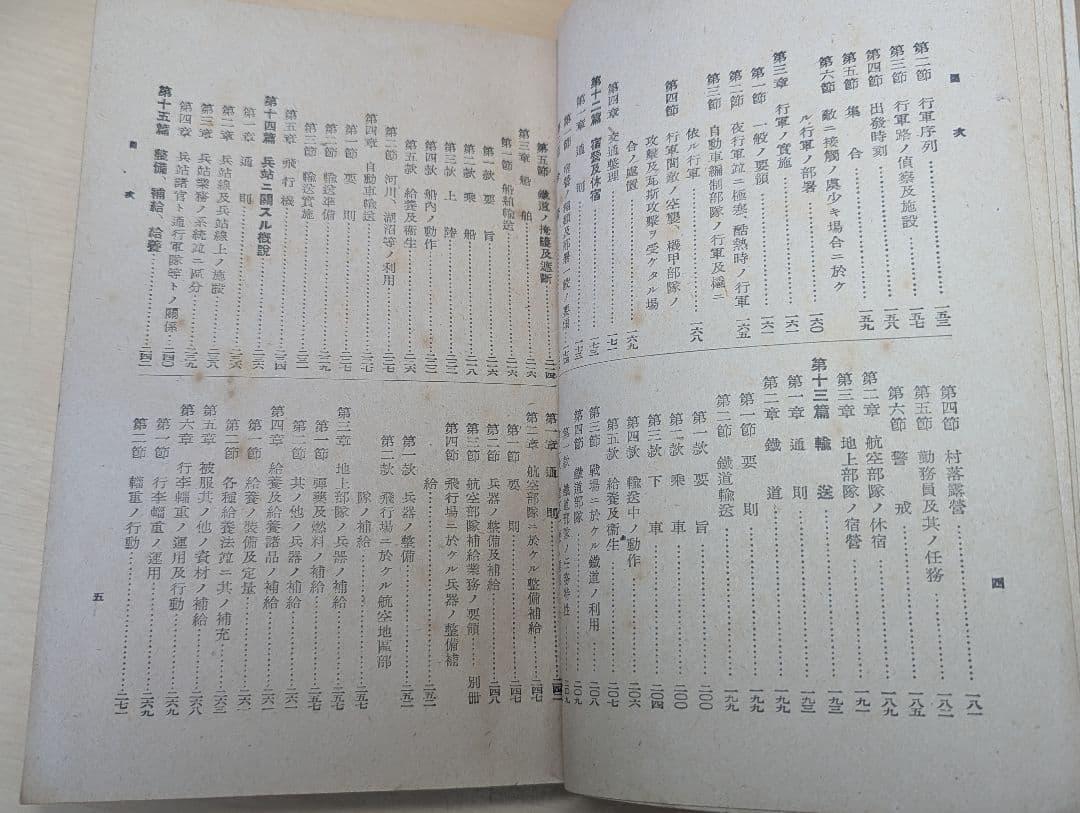 目次
第二節 行軍序列…………一五三
第三節 行軍路ノ偵察及施設…………一五七
第四節 出發時刻…………一五八
第五節 集合…………一五九
第六節 敵ニ接觸ノ虞少キ場合ニ於ケ
ル行軍ノ部署…………一六〇
第三章 行軍ノ實施…………一六一
第一節 一般ノ要領…………一六一
第二節 夜行軍竝ニ極寒、酷熱時ノ行軍…………一六五
第三節 自動車編制部隊ノ行軍及橇ニ
依ル行軍…………一六八
第四節 行軍間敵ノ空襲、機甲部隊ノ
攻擊及瓦斯攻擊ヲ受ケタル場
合ノ處置…………一六九
第四章 交通整理…………一七一
第十二篇 宿營及休宿…………一七三
第一章 通則…………一七三
四
第四節 村落露營…………一八一
第五節 勤務員及其ノ任務…………一八二
第六節 警戒…………一八五
第二章 航空部隊ノ休宿…………一八九
第三章 地上部隊ノ宿營…………一九一
第十三篇 輸送…………一九三
第一章 通則…………一九三
第二章 鐵道…………一九九
第一節 要則…………一九九
第二節 鐵道輸送…………一九九
第一款 要旨…………二〇〇
第二款 乘車…………二〇〇
第三款 下車…………二〇四
第四款 輸送中ノ動作…………二〇六
第五款 給養及衞生…………二〇七
第三節 戰場ニ於ケル鐵道ノ利用…………二〇八
第四節 鐵道部隊…………二〇九
第五節 鐵道ノ掩護及遮斷…………二一四
第三章 船舶…………二一六
第一節 船舶輸送…………二一六
第一款 要旨…………二一六
第二款 乘船…………二一八
第三款 上陸…………二二二
第四款 船內ノ動作…………二二三
第五款 給養及衞生…………二二六
第二節 河川、湖沼等ノ利用…………二二七
第四章 自動車輸送…………二二七
第一節 要則…………二二七
第二節 輸送準備…………二三〇
第三節 輸送實施…………二三二
第五章 飛行機…………二三四
第十四篇 兵站ニ關スル概說…………二三六
第一章 通則…………二三六
第二章 兵站線及兵站線上ノ施設…………二三八
第三章 兵站業務ノ系統竝ニ區分…………二三九
第四章 兵站諸官ト通行軍隊等トノ關係…………二四〇
第十五篇 整備、補給、給養…………二四二
目次
第一章 通則…………二四二
第二章 航空部隊ニ於ケル整備補給…………二四七
第一節 要則…………二四七
第二節 兵器ノ整備及補給…………二四八
第三節 航空部隊補給業務ノ要領…………別冊
第四節 飛行場ニ於ケル兵器ノ整備補
給…………二五一
第一款 兵器ノ整備…………二五一
第二款 飛行場ニ於ケル航空地區部
隊ノ補給…………二五七
第三章 地上部隊ノ兵器ノ補給…………二五七
第一節 彈藥及燃料ノ補給…………二五七
第二節 其ノ他ノ兵器ノ補給…………二六一
第四章 給養及給養諸品ノ補給…………二六一
第一節 給養ノ裝備及定量…………二六一
第二節 各種給養法竝ニ其ノ補充…………二六三
第五章 被服其ノ他ノ資材ノ補給…………二六八
第六章 行李輜重ノ運用及行動…………二六九
第一節 行李輜重ノ運用…………二六九
第二節 輜重ノ行動…………二七一
五